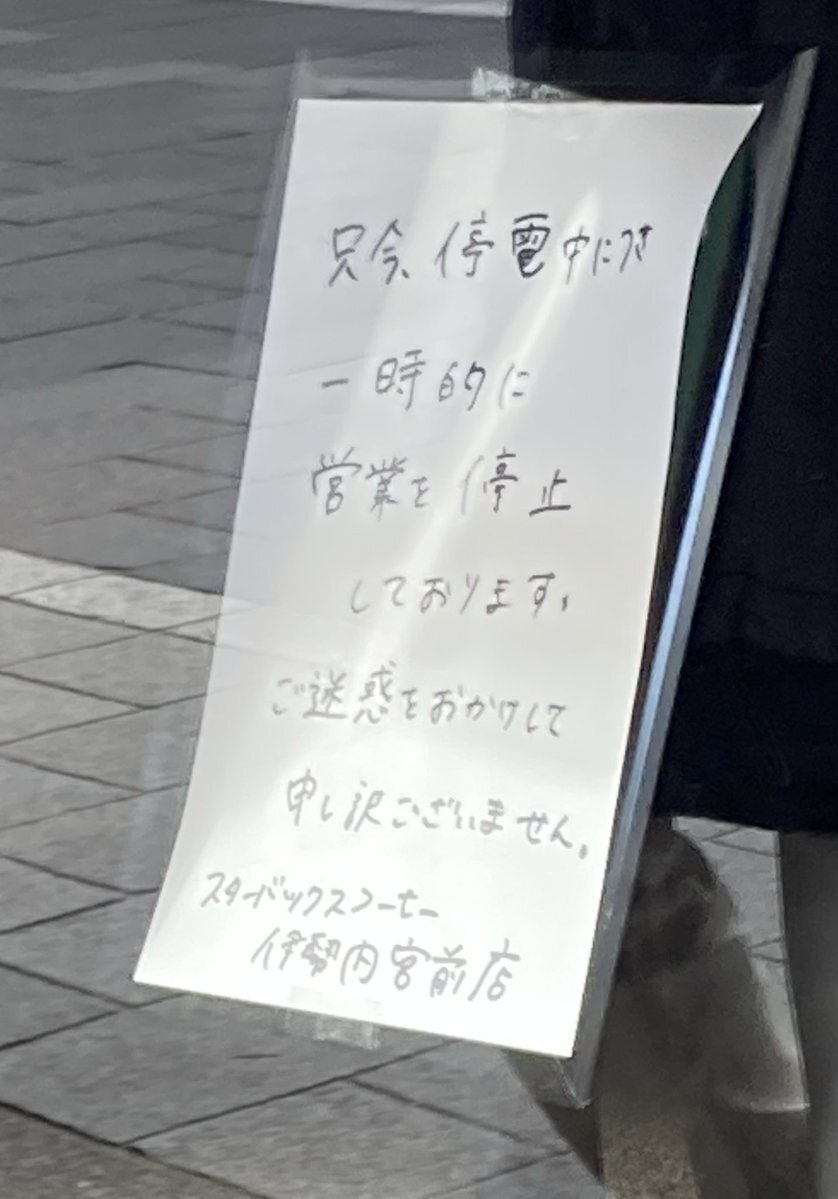 只今、停電中につき
一時的に
営業を停止
しております。
ご迷惑をおかけして
申し訳ございません。
スターバックスコーヒー
伊勢内宮前店